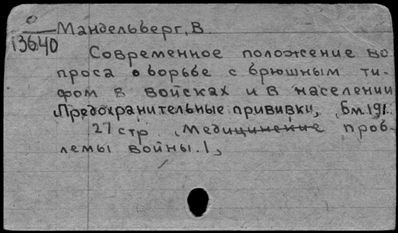 Мандельберг, В.
13640
Современное положение во
проса о борьбе с брюшным ти-
фом в войсках и в населении
Предохранительные прививки,
27 стр. Медицинские проб-
лемы войны.